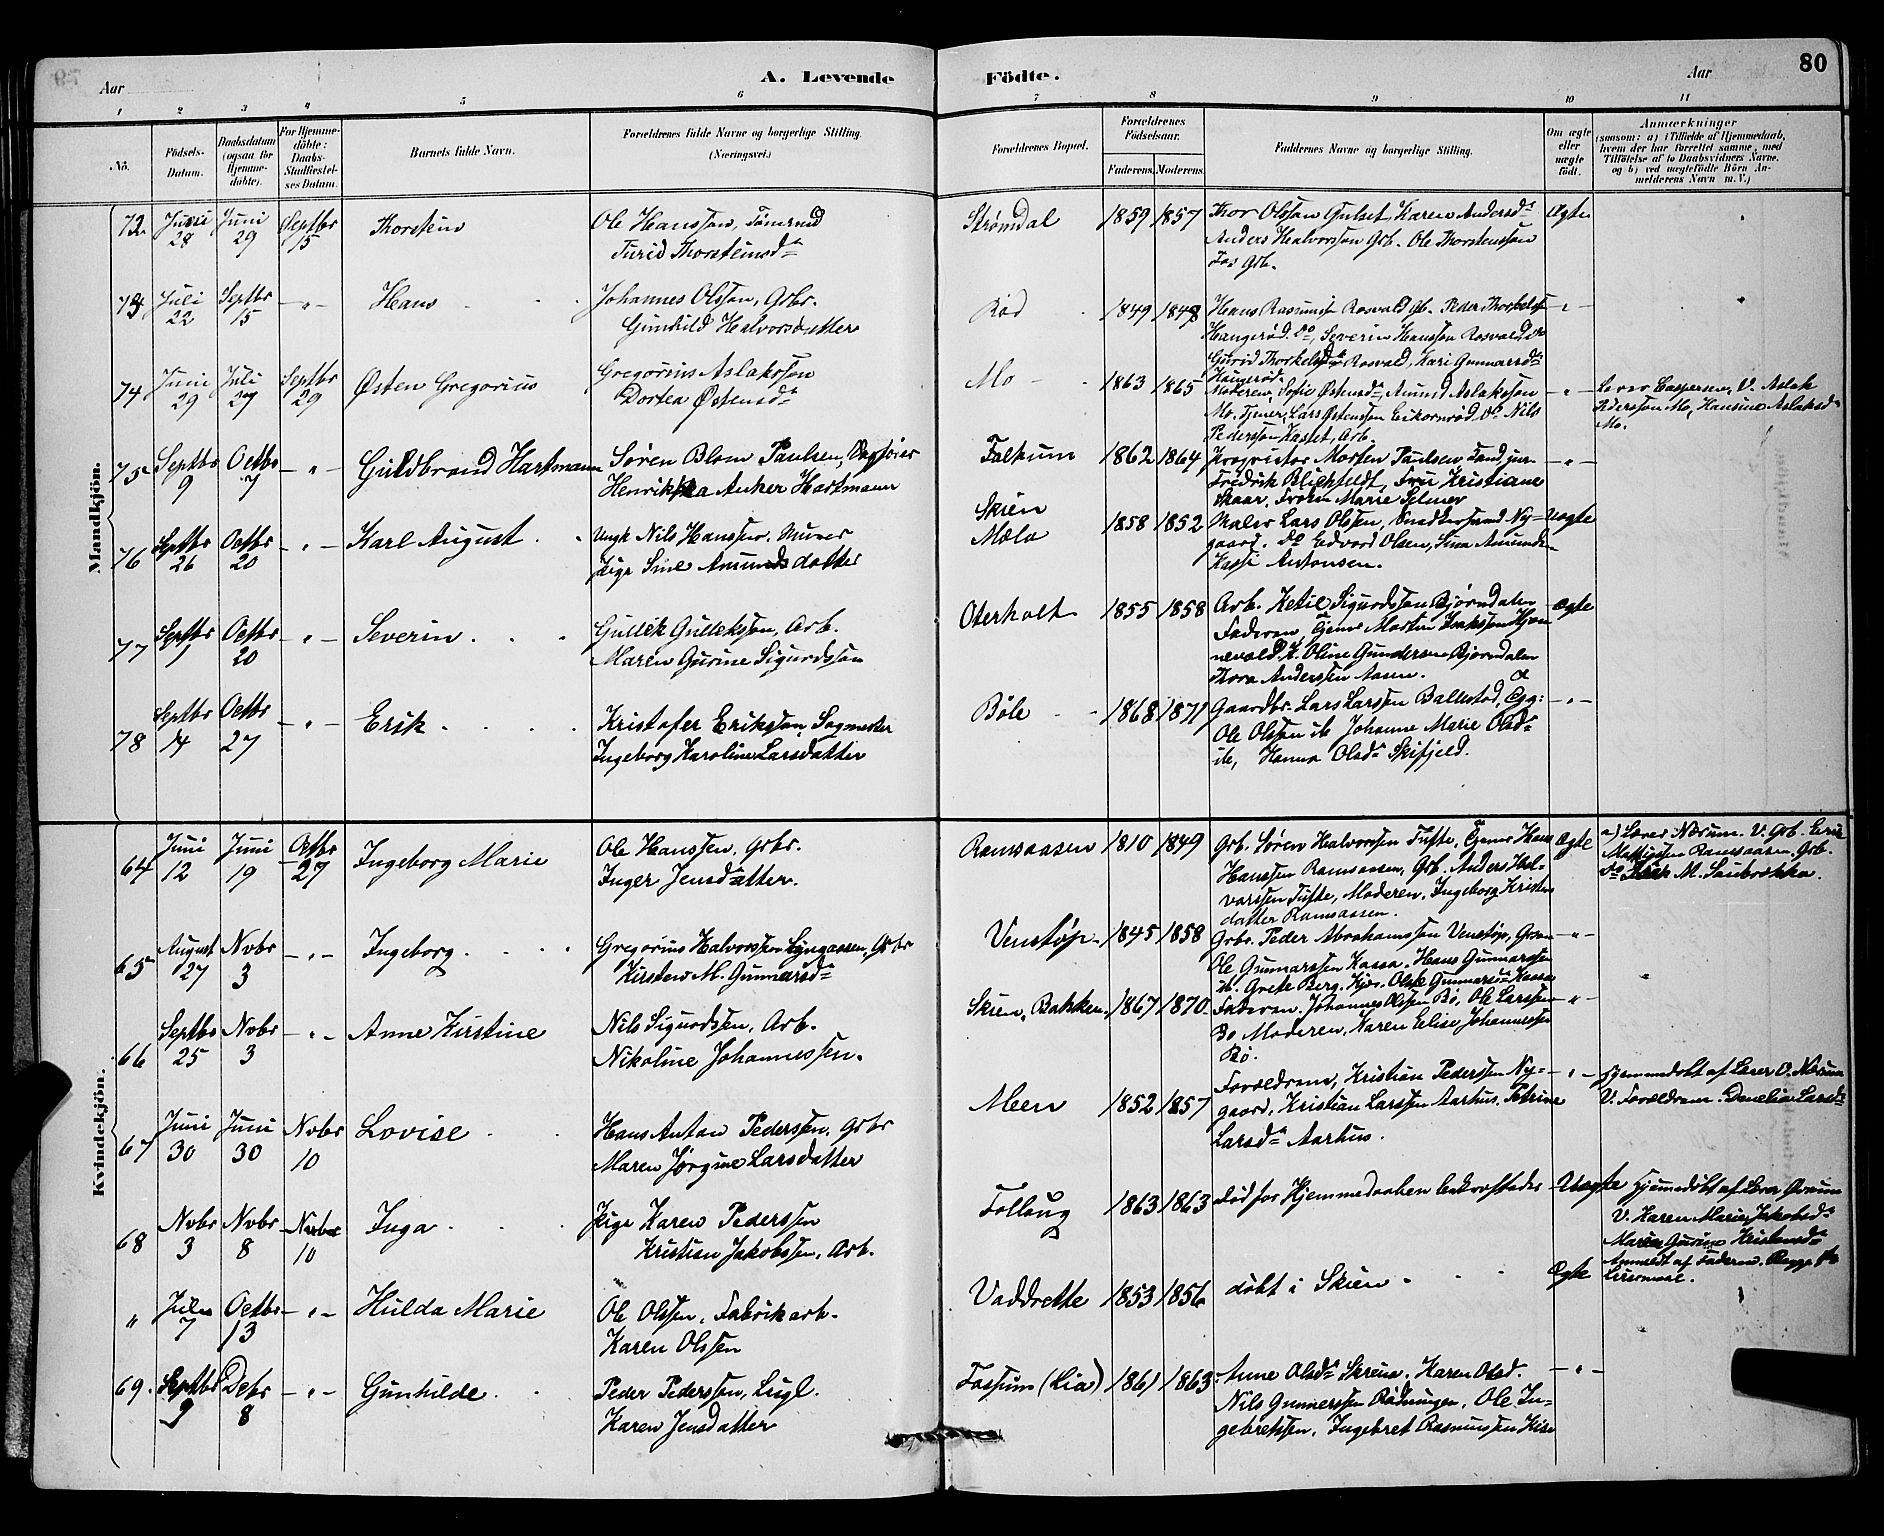 80
Aar
A. Levende
Födte.
Aar
1 2 3 4 5 6 7 8 9 10 11
No.
Födsels-Datum.
Daabsdatum (ogsaa for Hjemme-döbte).
For Hjemme-döbte: Daabs-Stadfæstel-ses Datum.
Barnets fulde Navn.
Forældrenes fulde Navne og borgerlige Stilling.
(Næringsvei.)
Forældrenes Bopæl.
Forældrenes Födselsaar.
Faderens. Moderens.
Faddernes Navne og borgerlige Stilling.
Om ægte eller uægte födt.
Anmærkninger
(saasom: a) i Tilfælde af Hjemmedaab,
hvem der har forrettet samme, med
Tilföielse af to Daabsvidners Navne,
og b) ved uægtefödte Börn An-
melderens Navn m. V.)
Mandkjön.
72 Juni 28 Juni 29 Septbr 15 Thorstein
Ole Hanssen, Tömmd
Turid Thorsteinsd.
Strömdal 1859 1857
Thor Olsson Gulset, Karen Andersd.
Anders Halvorsson Grb. Ole Thorstensson
Fos Grb.
Ægte
73 Juli 22 Septbr 15 - " - Hans
Johannes Olsson, Grbr.
Gunhild Halvorsdatter
Röd 1849 1848
Hans Rasmussen Rosvald Gb. Peder Thorkelsen
Haugeröd Do, Severin Hansson Rosvald, Do
Gurid Thorkelsd. Rosvald, Kari Gunnarsd.
Haugeröd.
- " -
74 Juni 29 Juli 27 Septbr 29 Østen Gregorius
Gregorius Aslaksson
Dortea Østensd.
Mo 1863 1865
Moderen, Sofie Østensd. Amund Aslaksson
Mo. Tjener, Lars Østensson Eikornröd Do Nils
Pedersson Kasset, Arb.
- " -
Lærer Caspersen, V. Aslak
Pedersson Mo, Hansine Aslaksd.
Mo.
75 Septbr 9 Octbr 7 - " - Guldbrand Hartmann
Søren Blom Paulsen,
Henrikka Anker Hartmann
Falkum 1862 1864
Proprietær Morten Paulsen Cand jur.
Fredrik Blichfeldt, Fru Kristiane
Skaar, Frøken Marie Selmer
- " -
76 Septbr 26 Octbr 20 - " - Karl August
Ungk. Nils Hanssen, Murer
Pige Sine Amundsdatter
Skien
Mæla 1858 1852
Maler Lars Olsen, Snedkersvend Ny-
gaard. Do Edvard Olsen, Sina Amunds.
Kassi Antonsen.
Uægte
77 Septbr 1 Octbr 20 - " - Severin
Gullik Gulleksson, Arb.
Maren Gurine Sigurdsson
Oterholt 1855 1858
Arb. Ketil Sigurdsson Bjørndalen
Faderen, Tjener Morten Isaksson Hjem
nevold. P. Oline Gundersen Bjørndalen
Thora Anderssen Aasen.
Ægte
78 Septbr 14 Octbr 27 - " - Erik
Kristofer Eriksson, Sagmester
Ingeborg Karoline Larsdatter
Bøle 1868 1871
Gaardbr. Lars Larssen Ballestad,
Ole Olssen ib Johanne Marie Olsd.
ib, Hanna Olsd. Skifjeld.
- " -
Kvindekjön.
64 Juni 12 Juni 19 Octbr 27 Ingeborg Marie
Ole Hanssen, Grbr.
Inger Jensdatter.
Ramsaasen 1810 1849
Grb. Søren Halvorssen Tufte, Tjener Hans
Hanssen Ramsaasen, Grb. Anders Hal-
vorssen Tufte, Moderen, Ingeborg Kristens
datter Ramsaasen.
Ægte
a) Lærer Nærum. V. Grb. Erik
Mathissen Ramsaasen, Grb.
Do M. Saubrækka.
65 August 27 Novbr 3 - " - Ingeborg
Gregorius Halvorssen Lyngaasen, Grbr
Kirsten M. Gunnarsd.
Venstøp 1845 1858
Grbr. Peder Abrahamssen Venstøp,
Ole Gunnarssen Kaasa. Hans Gunnarssen
ib. Grete Berg. Kjær. Olste Gunnarsd. Kaasa
- " -
66 Septbr 25 Novbr 3 - " - Anne Kirstine
Nils Sigurdssen, Arb.
Nikoline Johannessen.
Skien, Bakken 1867 1870
Faderen. Johannes Olssen Bø, Ole Larssen
Bø Moderen, Karen Elise Johannessen
Bø.
- " -
67 Juni 30 Juni 30 Novbr 10 Lovise
Hans Anton Pederssen, Grbr
Maren Jørgine Larsdatter
Meen 1852 1857
Forældrene, Kristian Pederssen Ny-
gaard, Kristian Larssen Aarhus, Petrine
Larsd. Aarhus.
- " -
Hjemmedøbt af Lærer O. Nærum
V. Forældrene. Danelia Larsd.
68 Novbr 3 Novbr 8 Novbr 10 Inga
Pige Karen Pederssen
Kristian Jakobssen, Arb.
Follaug 1863 1863
død før Hjemmedaaben bekræftedes
Uægte
Hjemmedøbt af Lærer Øvrum
V. Karen Marie Jakobsd.
Maren Gurine Kristensd.
Anmeldt af Faderen.
" Juli 7 Octbr 13 - " - Hulda Marie
Ole Olssen, Fabrikarb.
Karen Olssen
Vaddrette 1853 1856
døbt i Skien
Ægte
69. Septbr 9 Debr 8 - " - Gunhilde
Peder Pederssen, Lugl.
Karen Jensdatter
Fossum (Lia) 1861 1863
Anne Olsd. Skreua, Karen Olsd.
Nils Gunnerssen Rødningen, Ole In-
gebretssen, Ingebret Rasmussen Kise
- " -